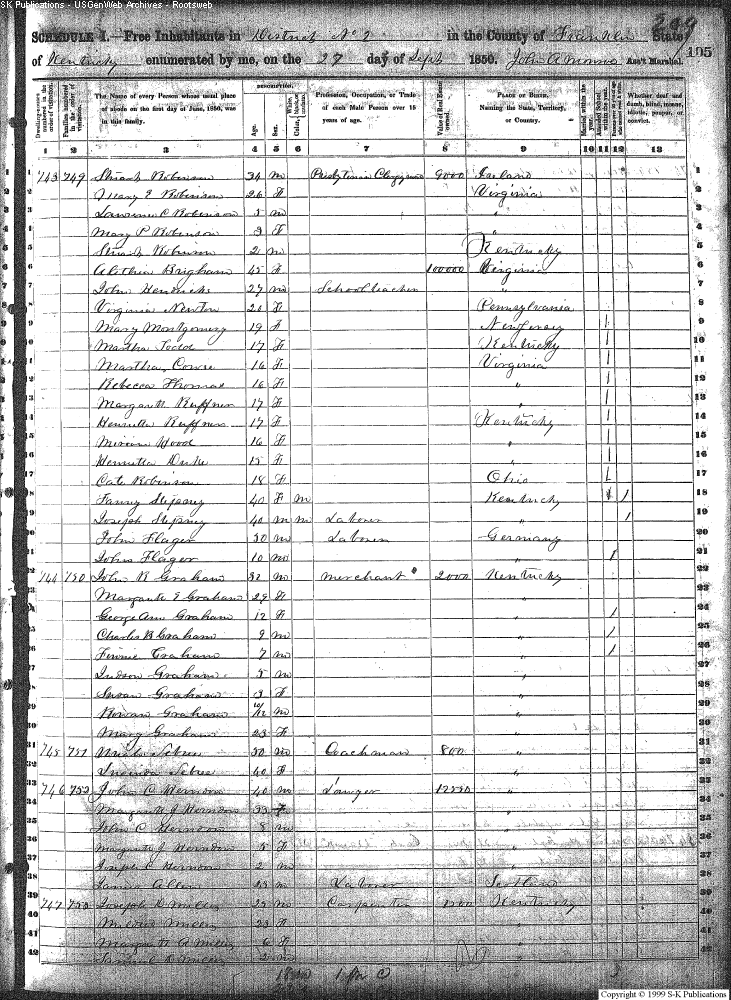 SK Publications - USGenWeb Archives - Rootsweb
209
SCHEDULE I.—Free Inhabitants in District No 2 in the County of Franklin State
of Kentucky enumerated by me, on the 27 day of Sept 1850. John A Monroe Ass't Marshal.
195
DESCRIPTION.
Dwelling-houses numbered in the order of visitation.
Families numbered in the order of visitation.
The Name of every Person whose usual place of abode on the first day of June, 1850, was in this family.
Age.
Sex.
White, black, or mulatto.
Color,
Profession, Occupation, or Trade of each Male Person over 15 years of age.
Value of Real Estate owned.
PLACE OF BIRTH. Naming the State, Territory, or Country.
Married within the year.
Attended School within the year.
Whether deaf and dumb, blind, insane, idiotic, pauper, or convict.
1 2 3 4 5 6 7 8 9 10 11 12 13
1 743 749 Stuart Robinson 34 m Presbyterian Clergyman 9000 Ireland 1
2 Mary E Robinson 26 F Virginia 2
3 Lawrence C Robinson 5 m " 3
4 Mary P Robinson 3 F " 4
5 Stuart Robinson 2 m Kentucky 5
6 Alethea Brigham 45 F 100000 Virginia 6
7 John Hendricks 27 m School teacher " 7
8 Virginia Newton 20 F Pennsylvania 8
9 Mary Montgomery 19 F New Jersey 1 9
10 Martha 17 F Kentucky 1 10
11 Martha 16 F Virginia 1 11
12 Rebecca Thomas 16 F " 1 12
13 Margarett Ruffner 17 F 1 13
14 Henrietta Ruffner 17 F Kentucky 1 14
15 Wood 16 F " 1 15
16 Henrietta Duke 15 F " 1 16
17 Cate Robinson 18 F Ohio 1 17
18 Fanny Stepney 40 F m Kentucky 1 18
19 Joseph Stepney 40 m m Laborer 1 19
20 John Flager 30 m Laborer Germany 20
21 John Flager 10 m " 1 21
22 744 750 John R Graham 32 m Merchant 2000 Kentucky 22
23 Margarett E Graham 29 F " 23
24 George Ann Graham 12 F " 1 24
25 Charles B Graham 9 m " 1 25
26 Graham 7 m " 1 26
27 Judson Graham 5 m " 27
28 Susan Graham 3 F " 28
29 Rowan Graham 10/12 m " 29
30 Mary Graham 23 F " 30
31 745 751 Sebree 50 m Coachman 800 " 31
32 Lucinda Sebree 40 F " 32
33 746 752 John C Herndon 40 m Lawyer " 33
34 Margarett J Herndon 33 F " 34
35 John C Herndon 8 m " 35
36 Margarett J Herndon 5 F " 36
37 Joseph C Herndon 2 m " 37
38 James Allen m Laborer Scotland 38
39 747 753 Joseph D Miller 25 m Carpenter Kentucky 39
40 Miller 23 F " 40
41 Margarett A Miller 6 F " 41
42 Samuel D Miller 2 m " 42
Copyright © 1999 S-K Publications